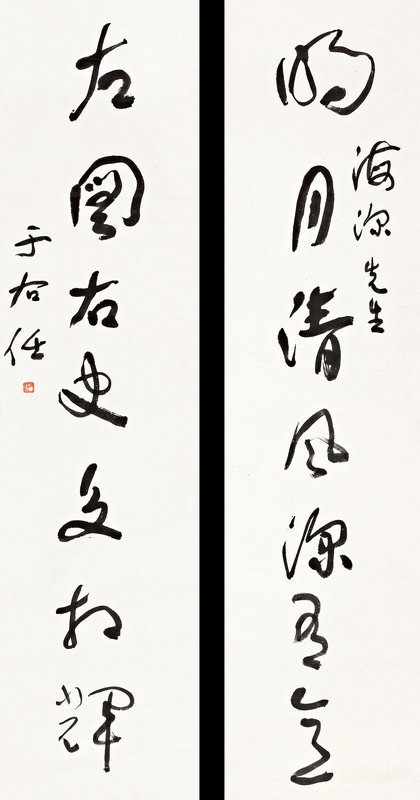 明月清風深有意
海深先生
左圖右史交相輝
于右任